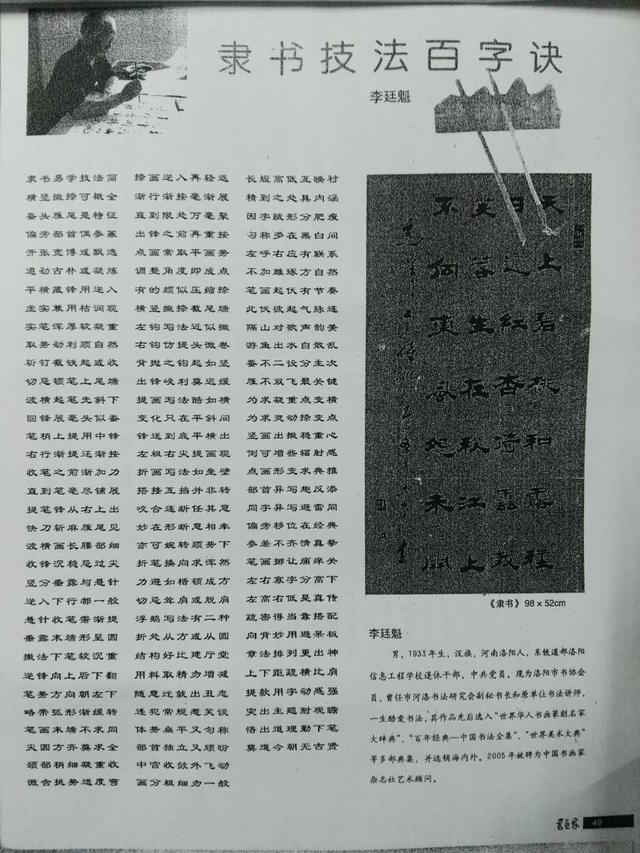 隶书技法百字诀
李廷魁
隶书易学技法简
横竖撇捺可概全
蚕头雁尾是特征
偏旁部首偶参篆
开张宽博或飘逸
遒劲古朴或凝炼
平横藏锋用逆入
虚实兼用枯润现
实笔浑厚较凝重
取势动利顺自然
斩钉截铁起或收
切忌顿笔上尾端
波横起笔先斜下
回锋展毫头似蚕
笔稍上提用中锋
右行渐提还渐按
收笔之前渐加力
直到笔毫尽铺展
提笔锋从右上出
快刀斩麻雁尾见
波横画长腰部细
收锋沉稳忌过尖
竖分垂露与悬针
逆入下行都一般
悬针收笔需渐提
垂露末端形呈圆
撇法下笔较沉重
逆锋向上后下翻
笔势方向朝左下
略带弧形渐缓转
笔画末端不求同
尖圆方齐莫求全
颈部稍细凝重收
微含挑势适度弯
捺画逆入再轻返
渐行渐按毫渐展
直到限处万毫聚
出锋之前再重按
点画常取平画势
调整角度即成点
有的颇似压缩捺
横竖撇捺截尾端
左钩写法近似撇
右钩仿捷头微卷
背抛之钩起如竖
出锋峻利莫迟缓
提画写法酷如横
变化只在平斜间
锋送到底平横出
左粗右尖提画现
折画写法如垒壁
搭接互挡并非转
咬合连断任其意
妙在形断意相牵
亦可婉转顺势下
折笔换向求浑然
力避如楷顿成方
切忌耸肩或脱肩
浮鹅写法有二种
折处从方或从圆
结构好比建厅堂
用料取精勿增减
随意迁就出丑态
违犯常规惹笑谈
体势扁平又匀称
部首独立又顾盼
中宫收敛外飞动
画分粗细勿一般
长短高低互映衬
精到之处具内涵
因字赋形分肥瘦
匀称多在黑白间
左呼右应有联系
不加雕琢方自然
笔画起伏有节奏
此伏彼起气脉连
隔山对歌声韵美
游鱼出水自散乱
蚕不二设分主次
雁不双飞最关键
为求凝重点变横
为求灵动捺变点
竖画出撇稳重心
倒可增些辐射感
点画形变求典雅
部首异写起反添
同字异写避雷同
偏旁移位在经典
参差不齐情真挚
笔画挪让痛痒关
左右寒字分高下
左高右低是真传
疏密得当靠搭配
向背妙用避呆板
章法排列更出神
上下距疏横比肩
提款用字动感强
突出主题耐观瞻
悟出道理勤下笔
莫道今朝无古贤
《隶书》98×52cm
李廷魁
男，1933年生，汉族，河南洛阳人，系铁道部洛阳
信息工程学校退休干部，中共党员，现为洛阳市书协会
员，曾任市河洛书法研究会副秘书长和原单位书法讲师，
一生酷爱书法，其作品先后选入“世界华人书画篆刻名家
大辞典”、“百年经典—中国书法全集”、“世界美术大典”
等多部典集，并远销海内外。2005年被聘为中国书画家
杂志社艺术顾问。
天上碧桃和露种
日边红杏倚云栽
芙蓉生在秋江上
不向东风怨未开
49